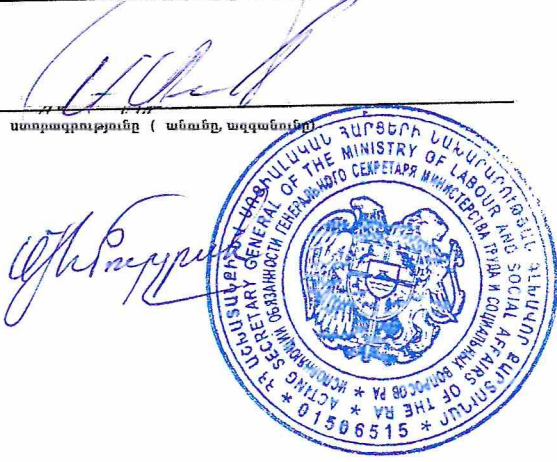 ստորագրությունը ( անունը, ազգանունը)
ՀՀ ԱՇԽԱՏԱՆՔԻ ԵՎ ՍՈՑԻԱԼԱԿԱՆ ՀԱՐՑԵՐԻ ՆԱԽԱՐԱՐՈՒԹՅԱՆ ԳԼԽԱՎՈՐ ՔԱՐՏՈՒՂԱՐ
ACTING SECRETARY GENERAL OF THE MINISTRY OF LABOUR AND SOCIAL AFFAIRS OF THE RA
ИСПОЛНЯЮЩИЙ ОБЯЗАННОСТИ ГЕНЕРАЛЬНОГО СЕКРЕТАРЯ МИНИСТЕРСТВА ТРУДА И СОЦИАЛЬНЫХ ВОПРОСОВ РА
* 01506515 *